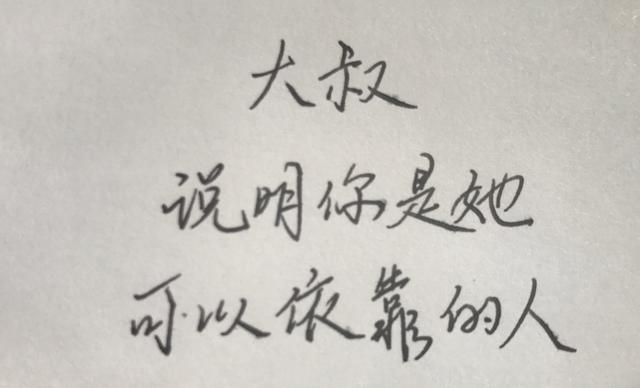 大叔
说明你是她
可以依靠的人